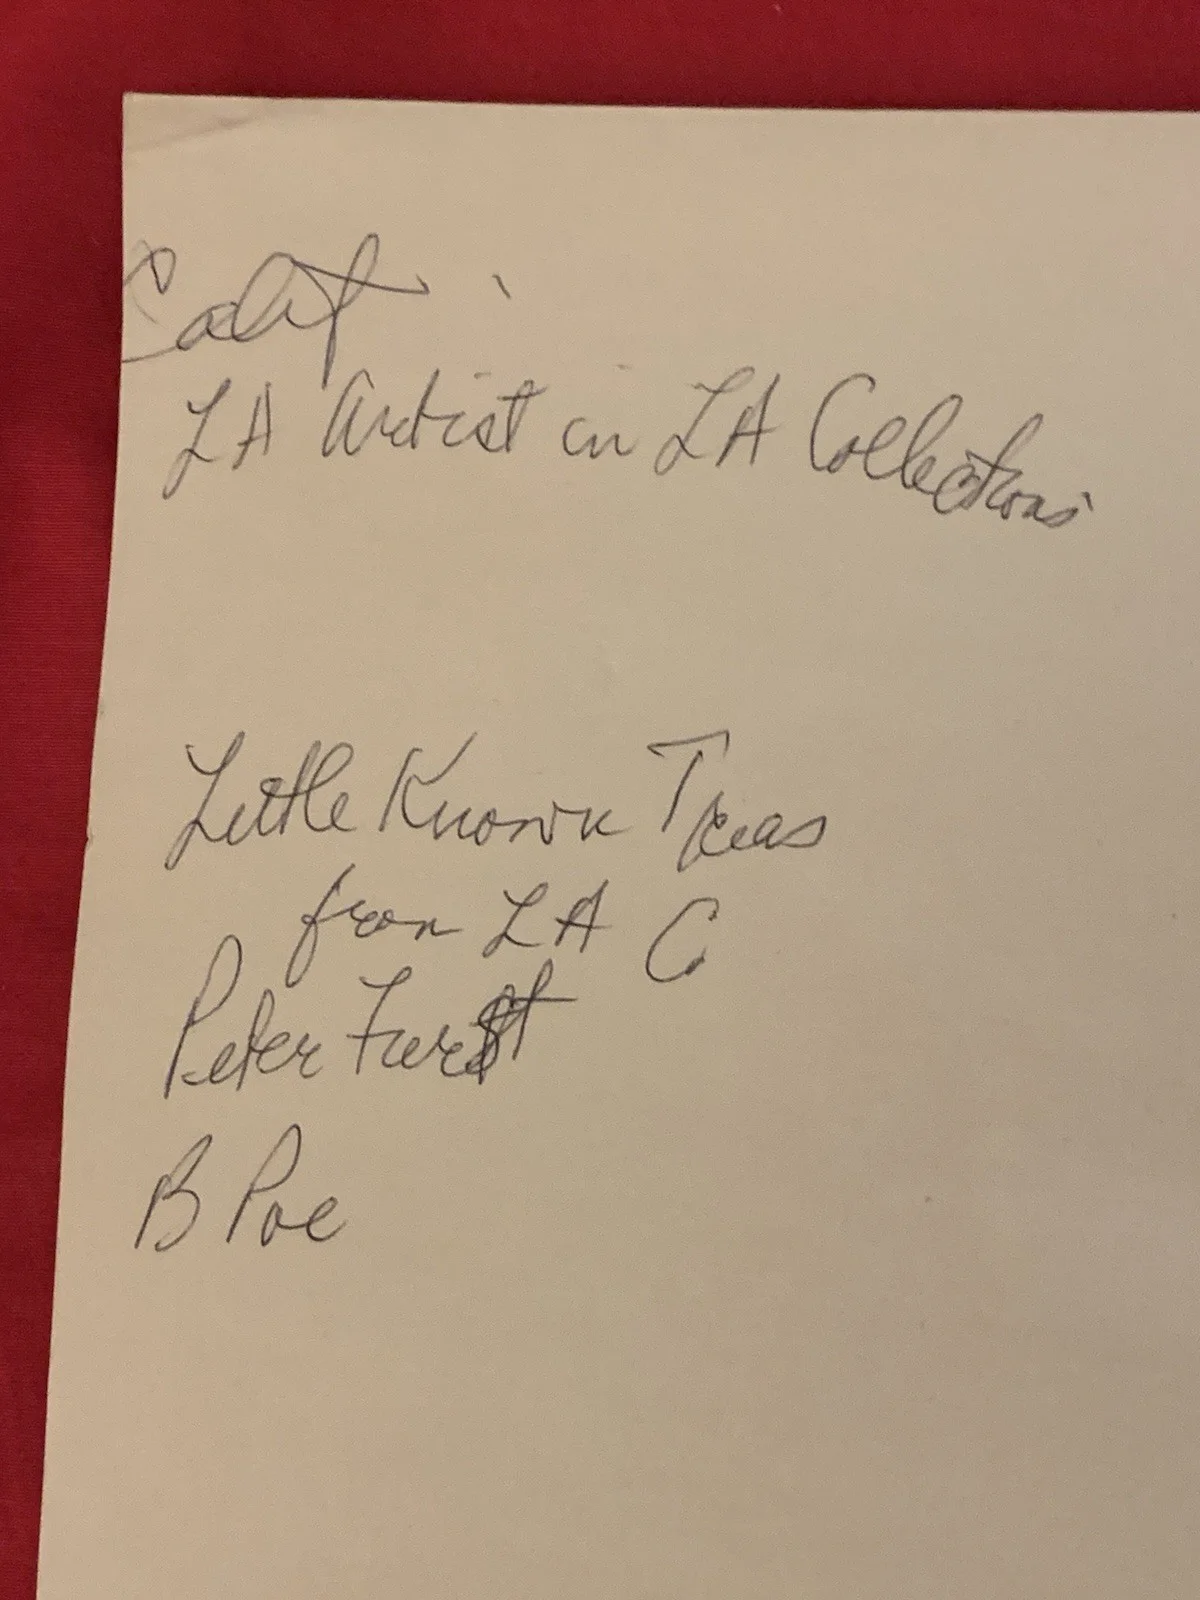 Calif
LA Artist in LA Collections
Little Known
from LA C
Peter Furst
B Poe